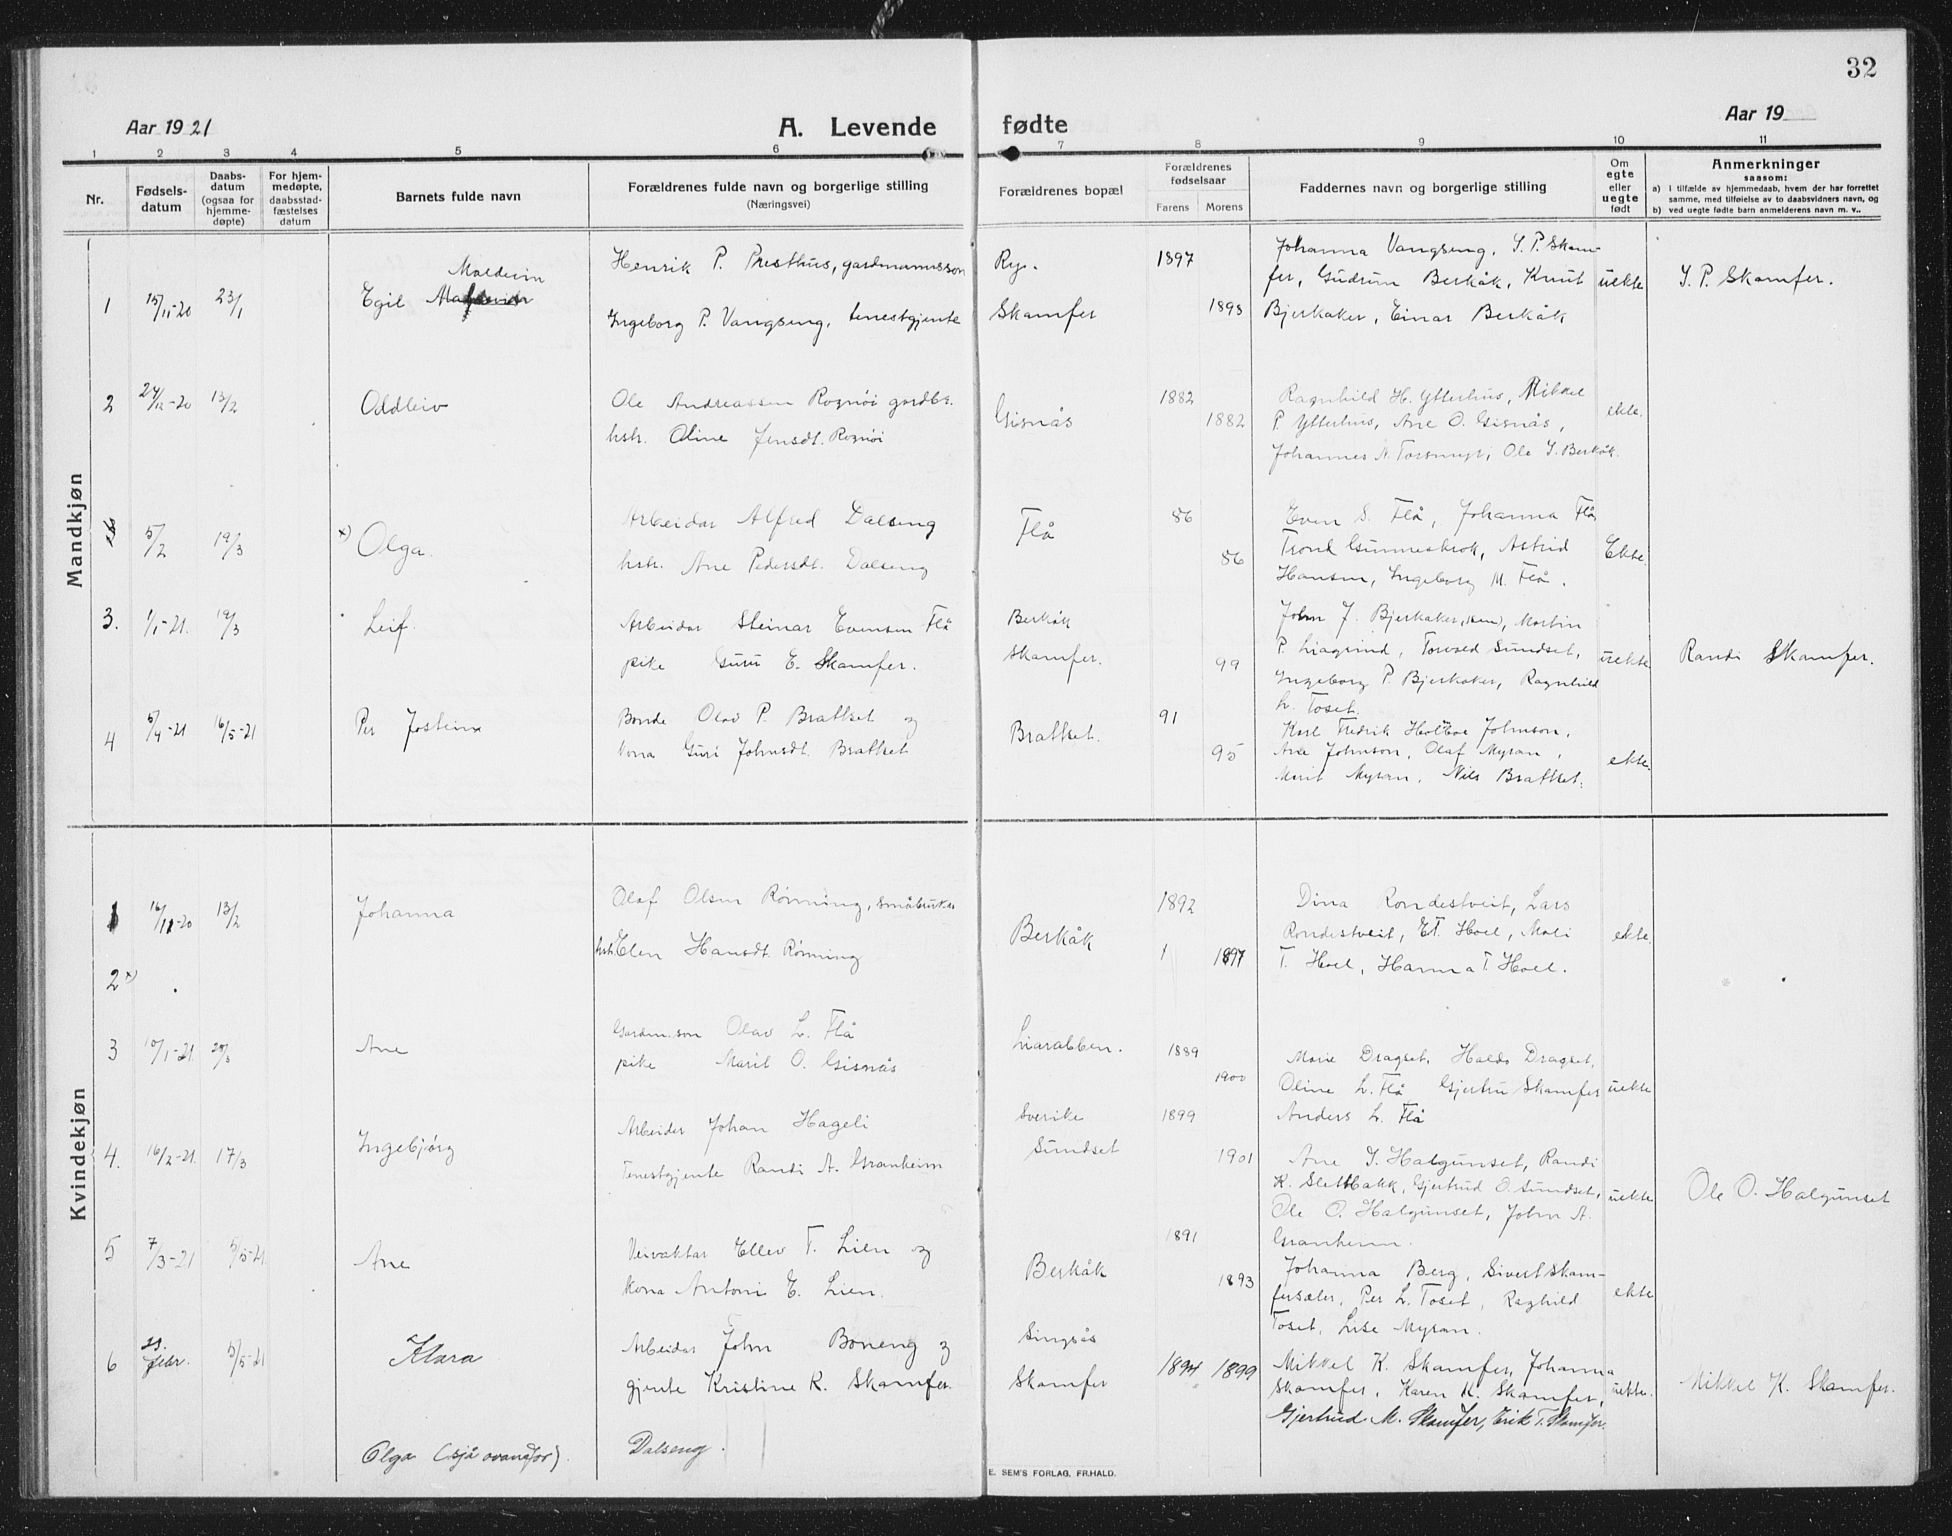 32
Aar 1921
A. Levende fødte
Aar 19
1 2 3 4 5 6 7 8 9 10 11
Nr.
Fødsels-
datum
Daabs-
datum
(ogsaa for
hjemme-
døpte)
For hjem-
medøpte,
daabsstad-
fæstelses
datum
Barnets fulde navn
Forældrenes fulde navn og borgerlige stilling
(Næringsvei)
Forældrenes bopæl
Forældrenes
fødselsaar
Farens Morens
Faddernes navn og borgerlige stilling
Om
egte
eller
uegte
født
Anmerkninger
saasom:
a) i tilfælde av hjemmedaab, hvem der har forrettet
samme, med tilføielse av to daabsvidners navn, og
b) ved uegte fødte barn anmelderens navn m. v..
Mandkjøn
1 15/11-20 23/1 Egil
Henrik P. Presthus, gardmannsson
Ingeborg P. Vangseng, tenestgjente
Ry.
Skamfer
1897
1898
Johanna Vangseng, S. P. Skam-
fer, Gudrun Berkåk, Knut
Bjerkaker, Einar Berkåk
uekte
S. P. Skamfer.
2 27/12-20 13/2 Oddleiv
Ole Andreassen Rognøi gardbr.
hstr. Oline Jensdt. Rognøi
Gisnås
1882
1882
Ragnhild H. Ytterhus, Mikkel
P. Ytterhus, Ane O. Gisnås,
Johannes N. Torsmyr, Ole S. Berkåk.
ekte.
5/2 19/3 x) Olga.
Arbeidar Alfred Dalseng
hstr. Ane Pedersdt. Dalseng
Flå
86
86
Even S. Flå, Johanna Flå
Trond Gunneskrok, Astrid
Hansen, Ingeborg M. Flå.
Ekte.
3. 1/1-21. 19/3 Leif.
Arbeidar Steinar Evensen Flå
pike Guru E. Skamfer.
Berkåk
Skamfer.
99
John J. Bjerkaker, (sen), Martin
P. Liagrind, Torved Sundset,
Ingeborg P. Bjerkaker, Ragnhild
L. Toset.
uekte.
Randi Skamfer.
4 5/4-21 16/5-21 Per Jostein
Bonde Olav P. Brattset og
kona Guri Johnsdt. Brattset
Brattset.
91
95
Karl Fredrik Holtboe Johnson,
Ane Johnson, Olaf Myran,
Marit Myran, Nils Brattset.
ekte.
Kvindekjøn
1 16/11-20 13/2 Johanna
Olaf Olsen Rønning, småbruker
hstr. Elen Hansdt. Rønning
Berkåk
1892
1897
Dina Rondestveit, Lars
Rondestveit, Et. Hoel, Mali
T. Hoel, Hanna T. Hoel.
ekte.
2 x)
3 10/1-21 20/3 Ane
Gardm.son Olav L. Flå
pike Marit O. Gisnås
Liarabben.
1889
1900
Marie Dragset, Haldo Dragset,
Oline L. Flå Gjertru Skamfer
Anders L. Flå
uekte
4. 16/2-21. 17/3 Ingebjørg
Arbeider Johan Hageli
Tenestgjente Randi A. Granheim
Sverike
Sundset
1899
1901
Ane I. Halgunset, Randi
K. Slettbakk, Gjertrud O. Sundset,
Ole O. Halgunset, John A.
Granheim.
uekte
Ole O. Halgunset
5 7/3-21 5/5-21 Ane
Veivaktar Ellev T. Lien og
kona Antoni E. Lien.
Berkåk
1891
1893
Johanna Berg, Sivert Skam-
fersæter, Per L. Toset, Raghild
Toset, Lise Myran.
ekte
6 23. febr. 5/5-21 Klara
Arbeidar John Boneng og
gjente Kristine K. Skamfer.
Singsås
Skamfer
1894 1899
Mikkel K. Skamfer, Johanna
Skamfer, Karen K. Skamfer,
Gjertrud M. Skamfer, Erik T. Skamfer.
uekte.
Mikkel K. Skamfer.
Olga (sjå ovanfor).
Dalseng.
E. SEM'S FORLAG, FR.HALD.